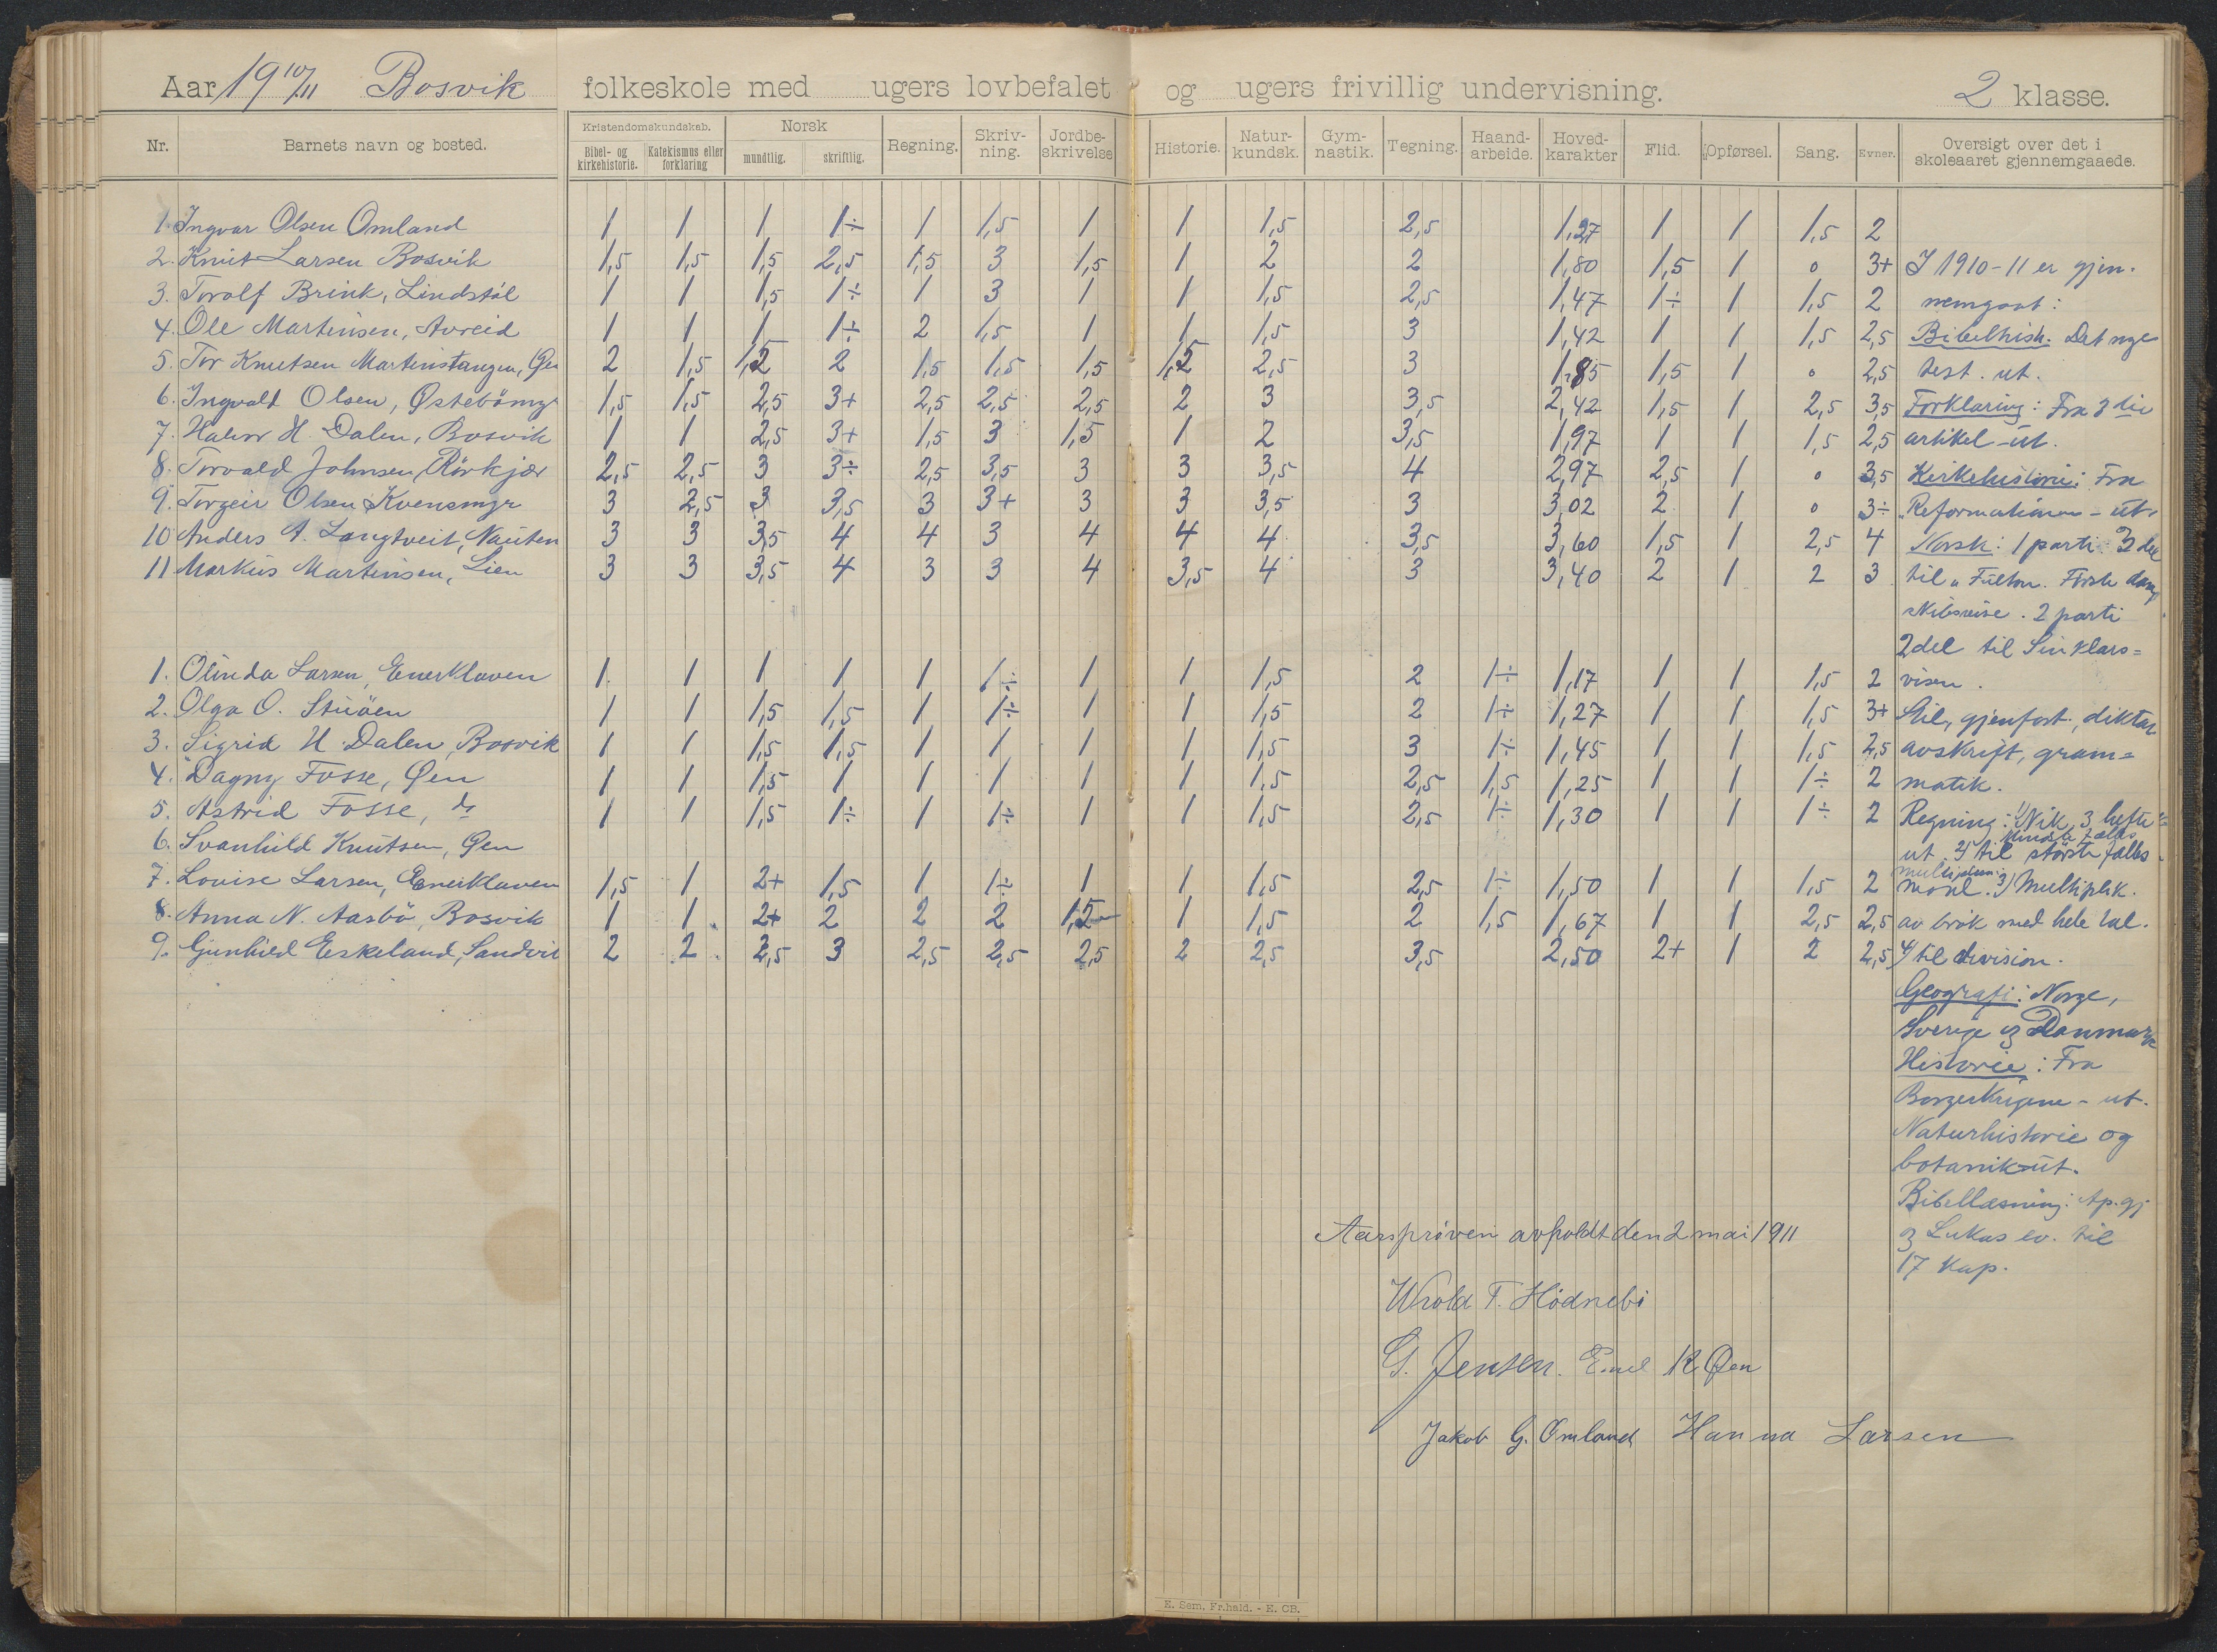 Aar 19 10/11 Bosvik folkeskole med ugers lovbefalet og ugers frivillig undervisning. 2 klasse.
Nr. Barnets navn og bosted. Kristendomskundskab. Bibel- og kirkehistorie. Katekismus eller forklaring Norsk mundtlig. skriftlig. Regning. Skriv-ning. Jordbe-skrivelse Historie. Natur-kundsk. Gym-nastik. Tegning. Haand-arbeide. Hoved-karakter Flid. Opførsel. Sang. Evner. Oversigt over det i skoleaaret gjennemgaaede.
1. Ingvar Olsen Omland 1 1 1 1÷ 1 1,5 1 1 1,5 2,5 1,27 1 1 1,5 2
2. Knut Larsen Bosvik 1,5 1,5 1,5 2,5 1,5 3 1,5 1 2 2 1,80 1,5 1 0 3+ I 1910-11 er gjen-
3. Torolf Brink, Lindstøl 1 1 1,5 1÷ 1 3 1 1 1,5 2,5 1,47 1÷ 1 1,5 2 nemgaat:
4. Ole Martinsen, Avreid 1 1 1 1÷ 2 1,5 1 1 1,5 3 1,42 1 1 1,5 2,5 Bibelhist. Det nye
5. Tor Knutsen Martinstangen, Øen 2 1,5 1,5 2 1,5 1,5 1,5 1,5 2,5 3 1,85 1,5 1 0 2,5 test. ut.
6. Ingvald Olsen, Østebömyr 1,5 1,5 2,5 3+ 2,5 2,5 2,5 2 3 3,5 2,42 1,5 1 2,5 3,5 Forklaring: Fra 3die
7. Halvor H. Dalen, Bosvik 1 1 2,5 3+ 1,5 3 1,5 1 2 3,5 1,97 1 1 1,5 2,5 artikel - ut.
8. Torvald Johnsen, Rörkjær 2,5 2,5 3 3÷ 2,5 3,5 3 3 3,5 4 2,97 2,5 1 0 3,5 Kirkehistorie: Fra
9. Torgeir Olsen Kvensmyr 3 2,5 3 3,5 3 3+ 3 3 3,5 3 3,02 2 1 0 3÷ Reformationen - ut.
10 Anders A. Langtveit, Nauten 3 3 3,5 4 4 3 4 4 4 3,5 3,60 1,5 1 2,5 4 Norsk: 1 parti 3 del
11 Markus Martinsen, Lien 3 3 3,5 4 3 3 4 3,5 4 3 3,40 2 1 2 3 til „Fulton. Förste damp
skibsreise. 2 parti
2del til Sinklars=
1. Olinda Larsen, Enerklaven 1 1 1 1 1 1÷ 1 1 1,5 2 1÷ 1,17 1 1 1,5 2 visen.
2. Olga O. Stuöen 1 1 1,5 1,5 1 1÷ 1 1 1,5 2 1÷ 1,27 1 1 1,5 3+ Stil, gjenfort., diktat
3. Sigrid H. Dalen, Bosvik 1 1 1,5 1,5 1 1 1 1 1,5 3 1÷ 1,45 1 1 1,5 2,5 avskrift, gram=
4. Dagny Fosse, Øen 1 1 1,5 1 1 1 1 1 1,5 2,5 1,5 1,25 1 1 1÷ 2 matik.
5. Astrid Fosse, do 1 1 1,5 1÷ 1 1÷ 1 1 1,5 2,5 1÷ 1,30 1 1 1÷ 2 Regning: 1) Nik. 3 hefte
6. Svanhild Knutsen, Øen ut. 2) til Mindste fælles
7. Lovise Larsen, Enerklaven 1,5 1 2+ 1,5 1 1÷ 1 1 1,5 2,5 1÷ 1,50 1 1 1,5 2 multiplum. 3) Multiplik.
8. Anna N. Aasbö, Bosvik 1 1 2+ 2 2 2 1,5 1 1,5 2 1,5 1,67 1 1 2,5 2,5 av brök med hele tal.
9. Gunhild Eskeland, Sandvik 2 2 2,5 3 2,5 2,5 2,5 2 2,5 3,5 2,50 2+ 1 2 2,5 4) til division.
Geografi: Norge,
Sverige og Danmark
Historie: Fra
Borgerkrigene - ut.
Naturhistorie og
botanik - ut.
Bibellæsning: Ap.gj
og Lukas ev. til
17 kap.
Aarsprøven avholdt den 2 mai 1911
T. Hödnebö
G. Jensen. Emil K Øen
Jakob G. Omland Hanna Larsen
E. Sem. Fr.hald. - E. CB.